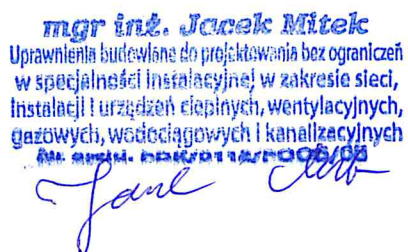 mgr inż. Jacek Mitek
Uprawnienia budowlane do projektowania bez ograniczeń
w specjalności instalacyjnej w zakresie sieci,
instalacji i urządzeń cieplnych, wentylacyjnych,
gazowych, wodociągowych i kanalizacyjnych